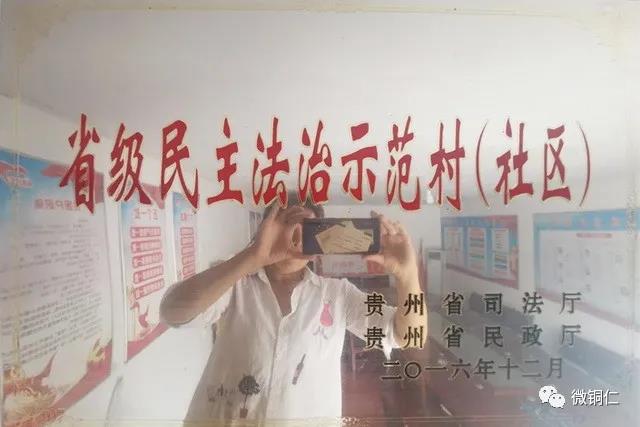 省级民主法治示范村(社区)
贵州省司法厅
贵州省民政厅
二〇一六年十二月
微铜仁